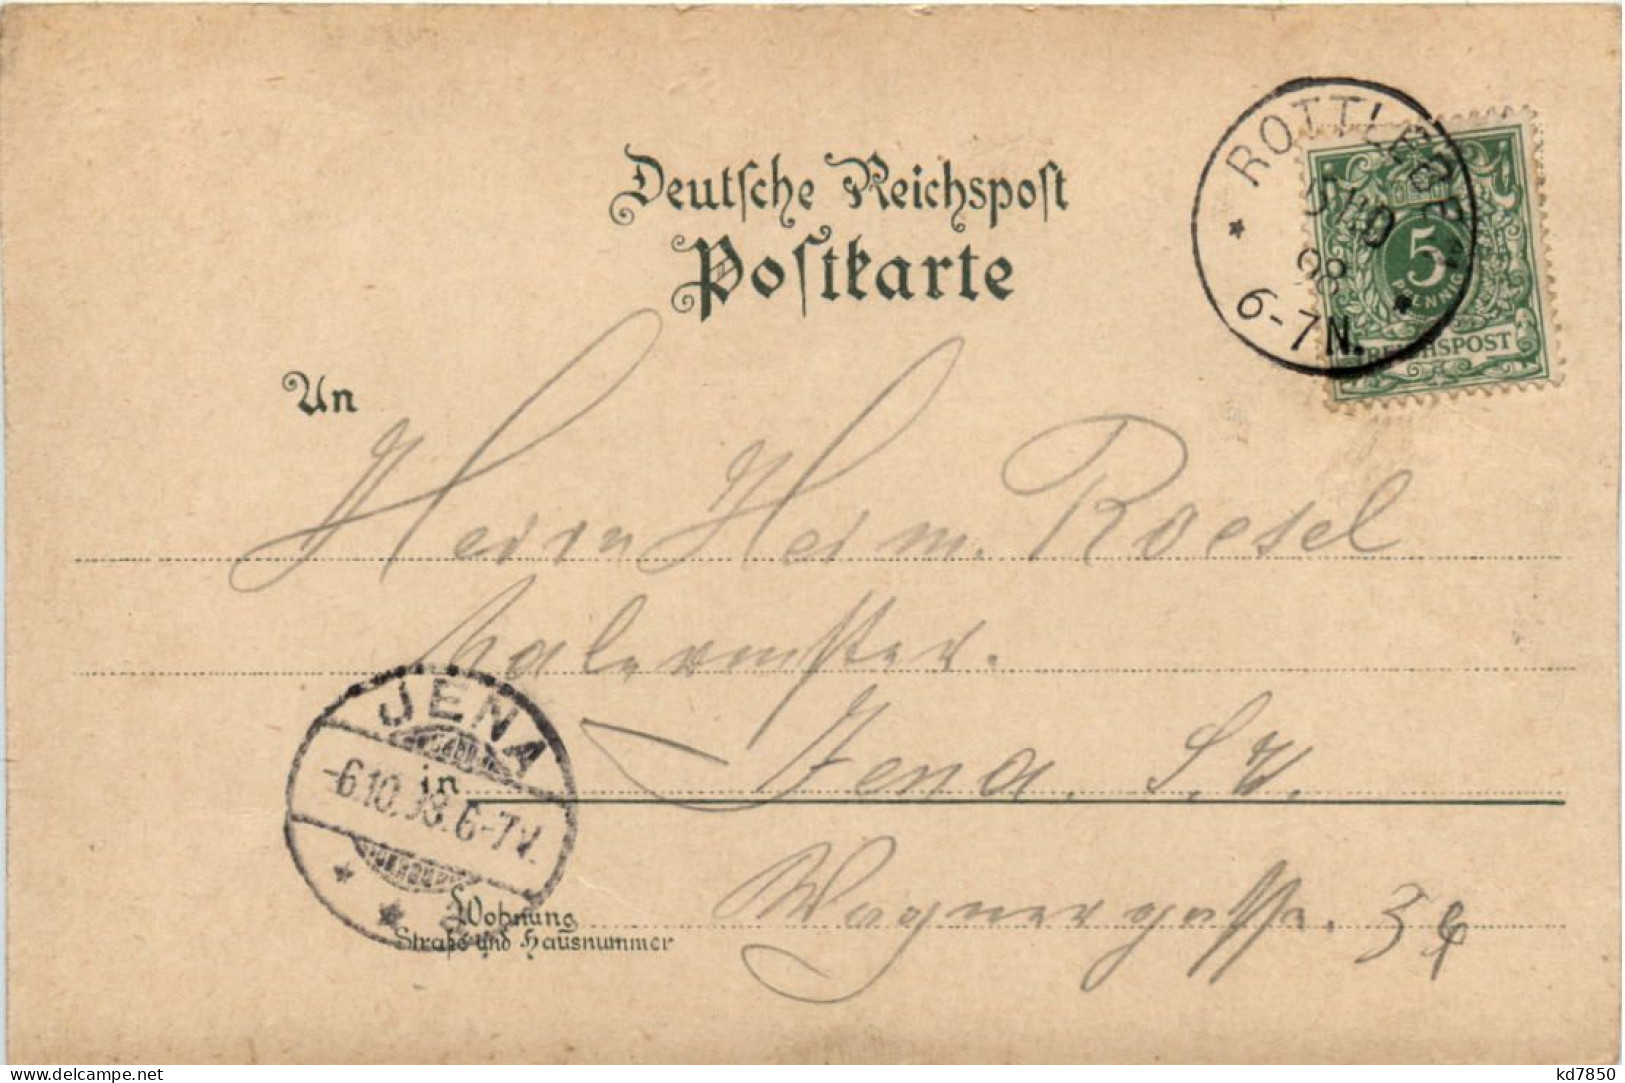 Deutsche Reichspost
Postkarte
ROTTLEBEN
5/10
98
6-7N.
5
PFENNIG
REICHSPOST
An
Herrn Heinr. Roesel
Malermster.
JENA
in Jena. S.W.
-6.10.98.6-7V.
Wohnung Wagnergasse. 34
Straße und Hausnummer
kd7850